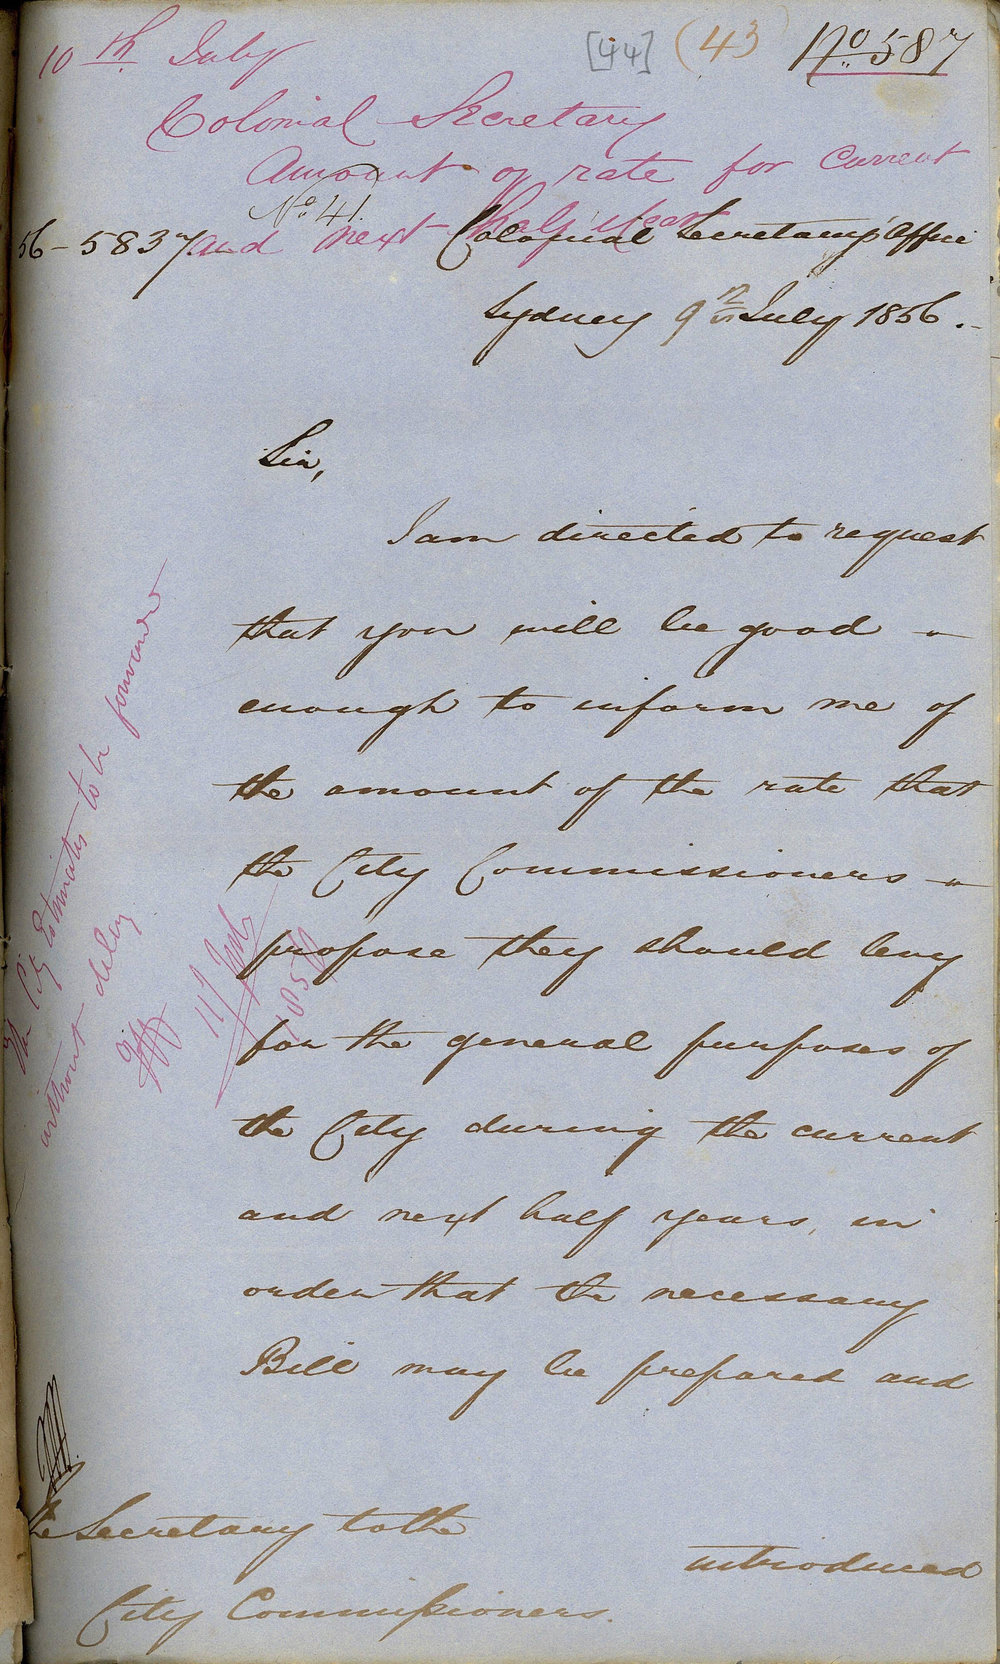 10th July
[44] (43) No. 587
Colonial Secretary
Amount of rate for Current
and next half Year
No. 41.
56-5837
Colonial Secretary's Office
Sydney 9th July 1856.
Sir,
I am directed to request
that you will be good
enough to inform me of
the amount of the rate that
the City Commissioners
propose they should levy
for the general purposes of
the City during the current
and next half years, in
order that the necessary
Bill may be prepared and
introduced
The City Estimates to be forwarded
without delay
11
1856
he Secretary to the
City Commissioners.